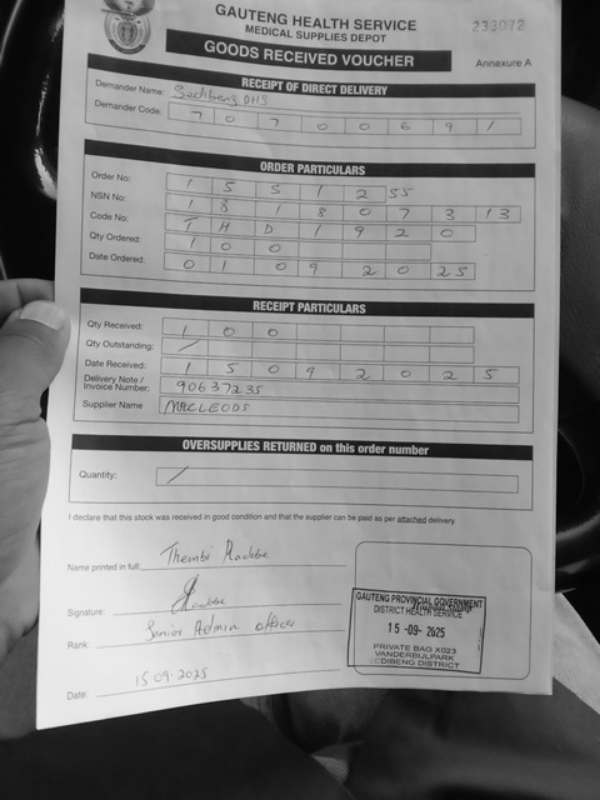 GAUTENG HEALTH SERVICE
MEDICAL SUPPLIES DEPOT
233072
GOODS RECEIVED VOUCHER
Annexure A
RECEIPT OF DIRECT DELIVERY
Demander Name: Sedibeng DHS
Demander Code: 7 0 7 0 0 6 9 1
ORDER PARTICULARS
Order No: 1 5 5 1 2 55
NSN No: 1 8 1 8 0 7 3 13
Code No: T H D 1 9 2 0
Qty Ordered: 1 0 0
Date Ordered: 0 1 0 9 2 0 25
RECEIPT PARTICULARS
Qty Received: 1 0 0
Qty Outstanding: /
Date Received: 1 5 0 9 2 0 2 5
Delivery Note / Invoice Number: 90637235
Supplier Name MACLEODS
OVERSUPPLIES RETURNED on this order number
Quantity: /
I declare that this stock was received in good condition and that the supplier can be paid as per attached delivery.
Name printed in full: Thembi
Signature:
Rank: Senior Admin officer
Date: 15.09.2025
GAUTENG PROVINCIAL GOVERNMENT
DISTRICT HEALTH SERVICE
15 -09- 2025
PRIVATE BAG X023
VANDERBIJLPARK
SEDIBENG DISTRICT